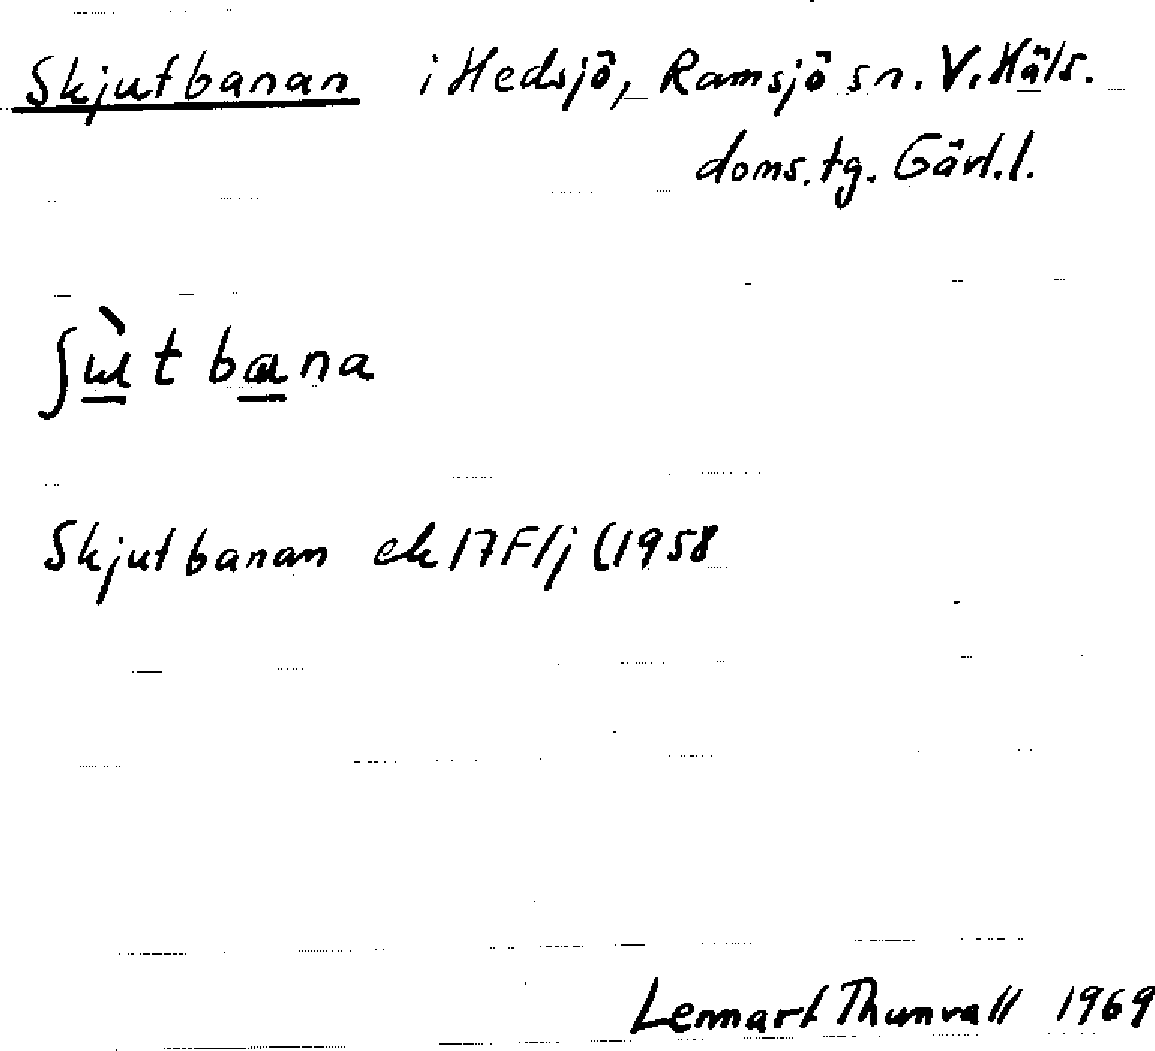 Skjutbanan i Hedsjö, Ramsjö sn. V. Häls.
doms. tg. Gävl. l.
ʃɯ̀t bana
Skjutbanan ek 17F1j (1958
Lennart Thunvall 1969